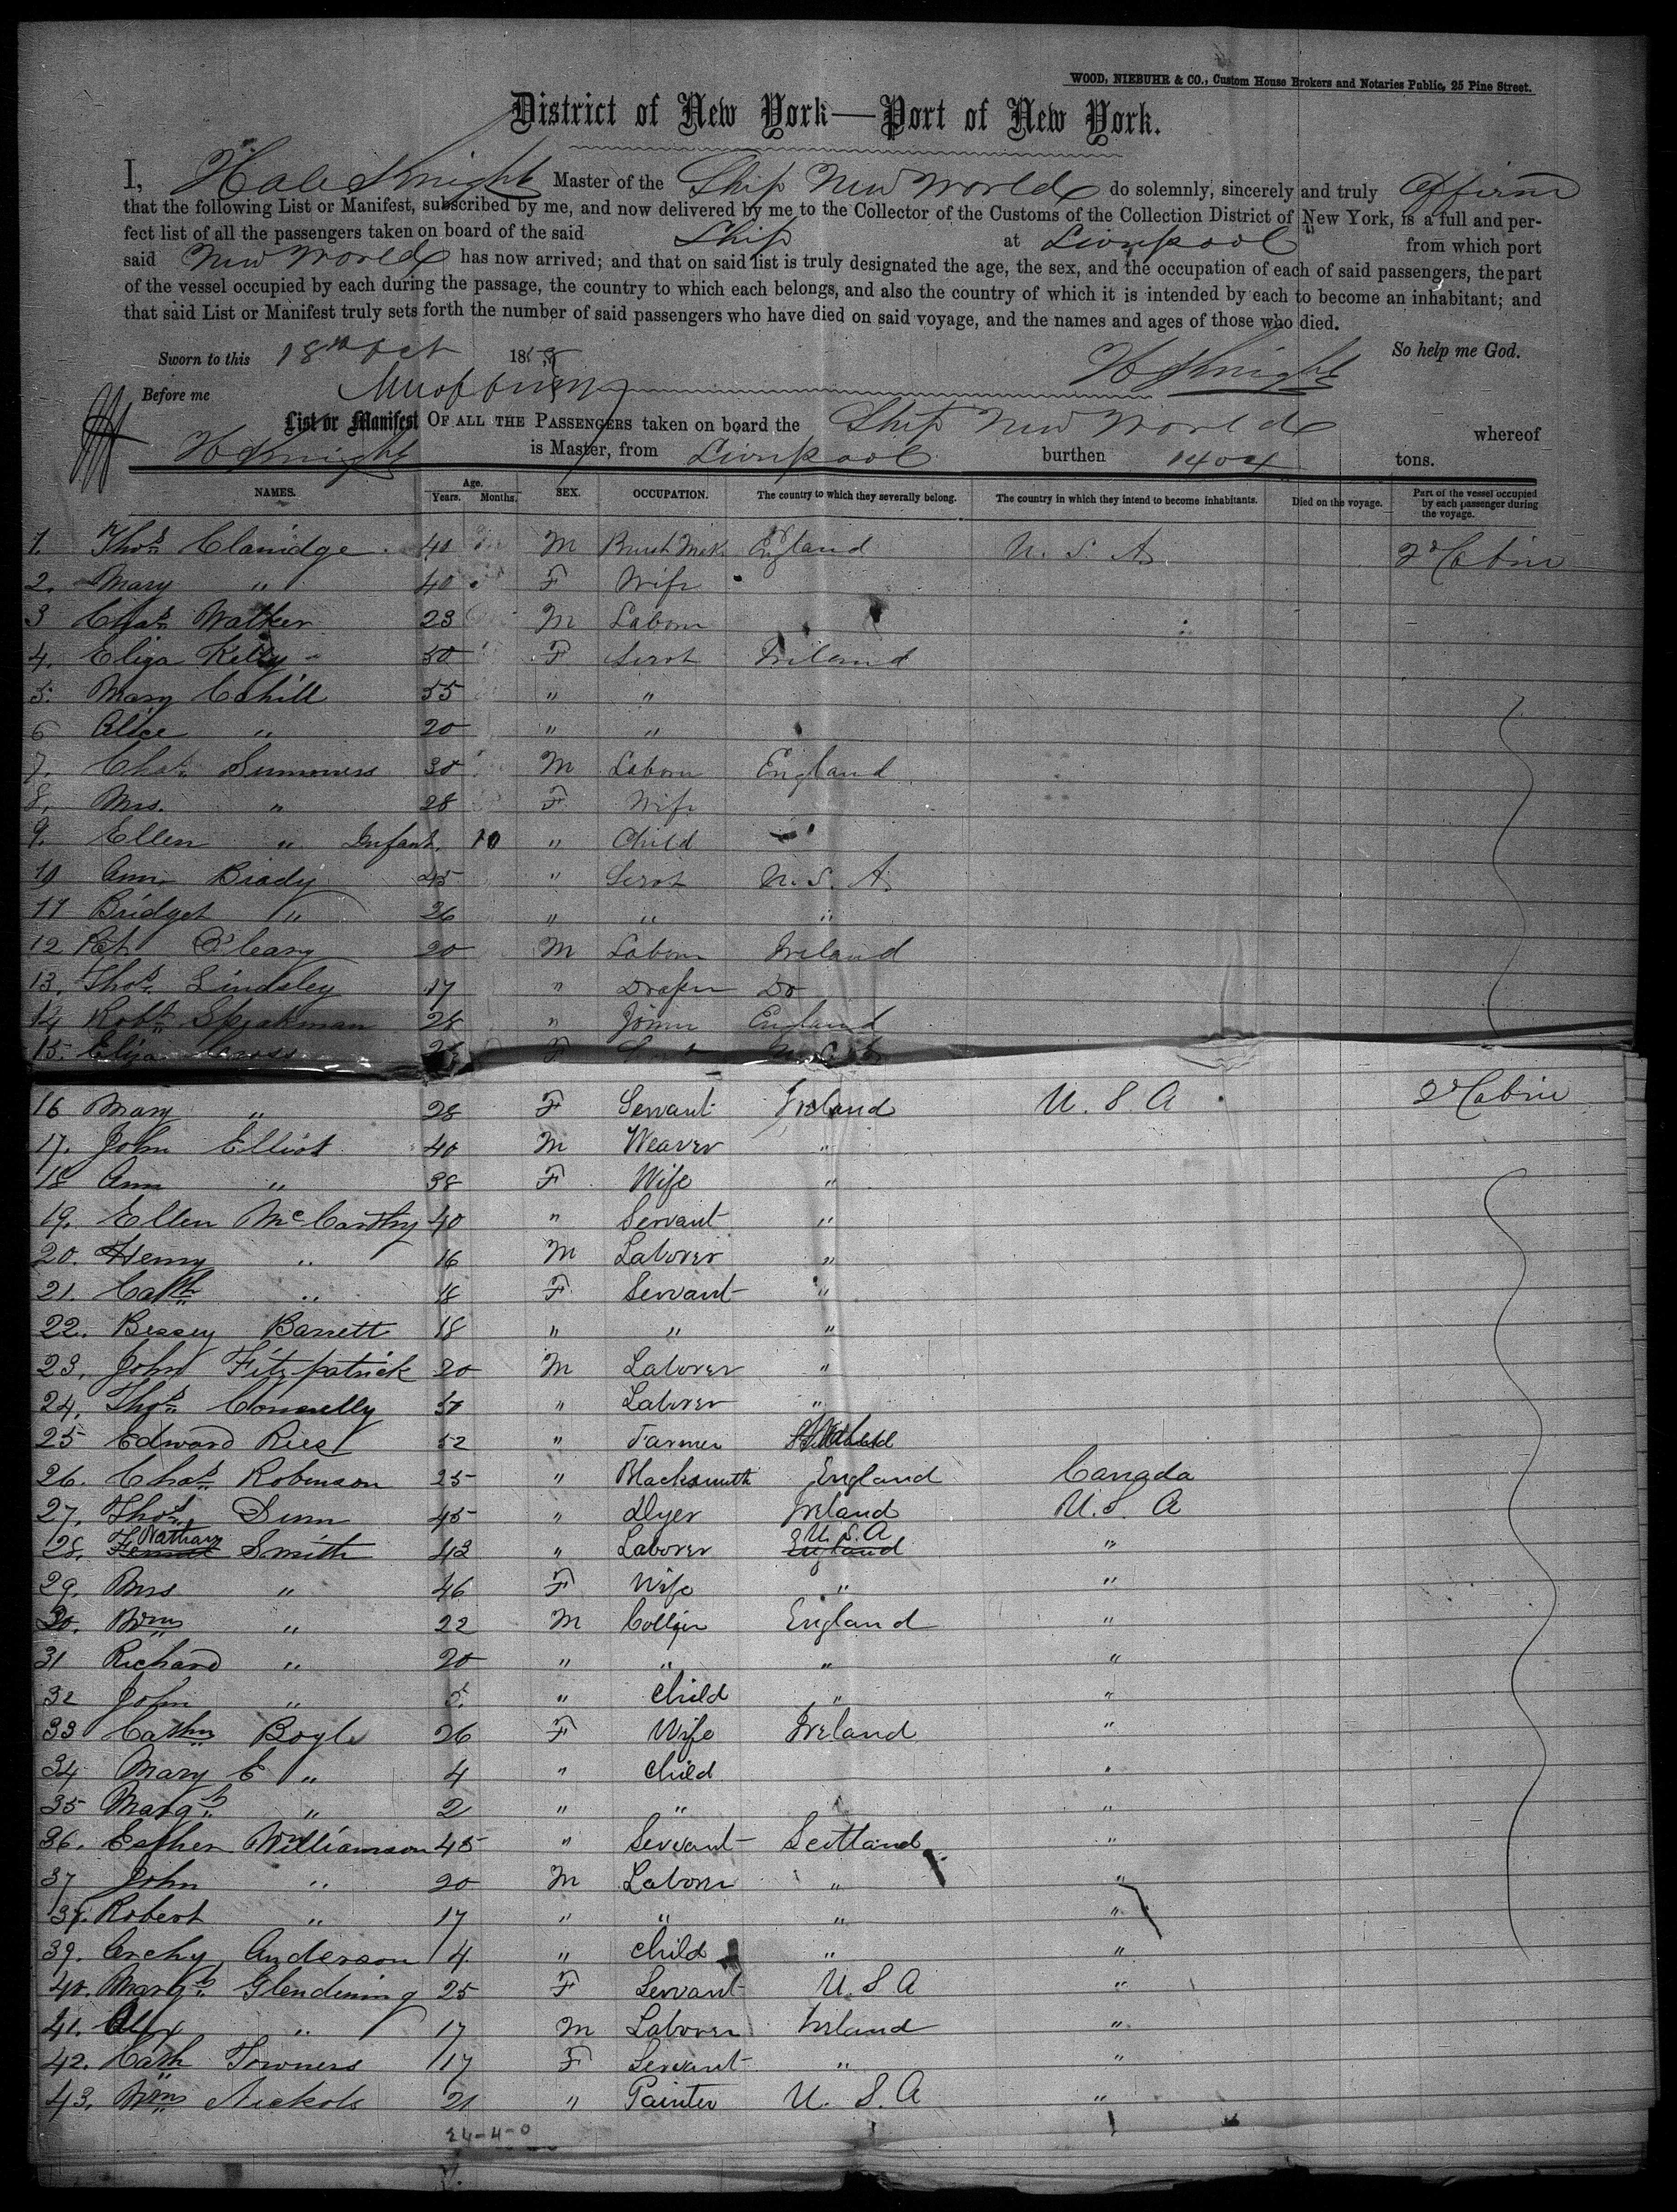 WOOD, NIEBUHR & CO., Custom House Brokers and Notaries Public, 25 Pine Street.
District of New York—Port of New York.
I, Hale Knight Master of the Ship New World do solemnly, sincerely and truly affirm
that the following List or Manifest, subscribed by me, and now delivered by me to the Collector of the Customs of the Collection District of New York, is a full and per-
fect list of all the passengers taken on board of the said Ship at Liverpool from which port
said New World has now arrived; and that on said list is truly designated the age, the sex, and the occupation of each of said passengers, the part
of the vessel occupied by each during the passage, the country to which each belongs, and also the country of which it is intended by each to become an inhabitant; and
that said List or Manifest truly sets forth the number of said passengers who have died on said voyage, and the names and ages of those who died.
Sworn to this 18th Oct 18 So help me God.
Before me H Knight
List or Manifest OF ALL THE PASSENGERS taken on board the Ship New World whereof
H Knight is Master, from Liverpool burthen 1404 tons.
NAMES. Age. Years. Months. SEX. OCCUPATION. The country to which they severally belong. The country in which they intend to become inhabitants. Died on the voyage. Part of the vessel occupied by each passenger during the voyage.
1. Thos Claridge 40 M England U. S. A 2d Cabin
2. Mary " 40 F Wife
3 Chas Walker 23 M Labour
4. Eliza Kelly 50 F Servt Ireland
5. Mary Cahill 55 " "
6 Alice " 20 " "
7. Chas Summers 30 M Labour England
8. Mrs. " 28 F Wife
9. Ellen " Infant. 10 " Child
10 Ann Brady 45 " Servt U. S. A
11 Bridget " 26 " " "
12 Pat O'Leary 20 M Labour Ireland
13. Thos Lindsley 17 " Draper Do
14 Robt Speakman 28 " Joiner England
15. Eliza Cross F
16 Mary " 28 F Servant Ireland U. S A 2d Cabin
17. John Elliot 40 M Weaver "
18 Ann " 38 F Wife "
19. Ellen McCarthy 40 " Servant "
20. Henry " 16 M Laborer "
21. Cath " 18 F Servant "
22. Bessey Barrett 18 " " "
23. John Fitzpatrick 20 M Laborer "
24. Thos Connelly " Laborer "
25 Edward Rees 52 " Farmer
26. Chas Robinson 25 " Blacksmith England Canada
27. Thos Dunn 45 " Dyer Ireland U. S. A
28. Nathan Smith 43 " Laborer England U. S. A "
29. Mrs " 46 F Wife " "
30. Wm " 22 M Collier England "
31 Richard " 20 " " " "
32 John " 5. " Child " "
33 Cathn Boyle 26 F Wife Ireland "
34 Mary E " 4 " Child "
35 Margt " 2 " " "
36. Esther Williamson 45 " Servant Scotland "
37 John " 20 M Labour " "
38. Robert " 17 " " " "
39. Archy Anderson 4. " Child " "
40. Margt Glendining 25 F Servant U S A "
41. Alex " 17 M Laborer Ireland "
42. Cath Towners 17 F Servant " "
43. Wm Nickols 21 " Painter U. S. A "
24-4-0